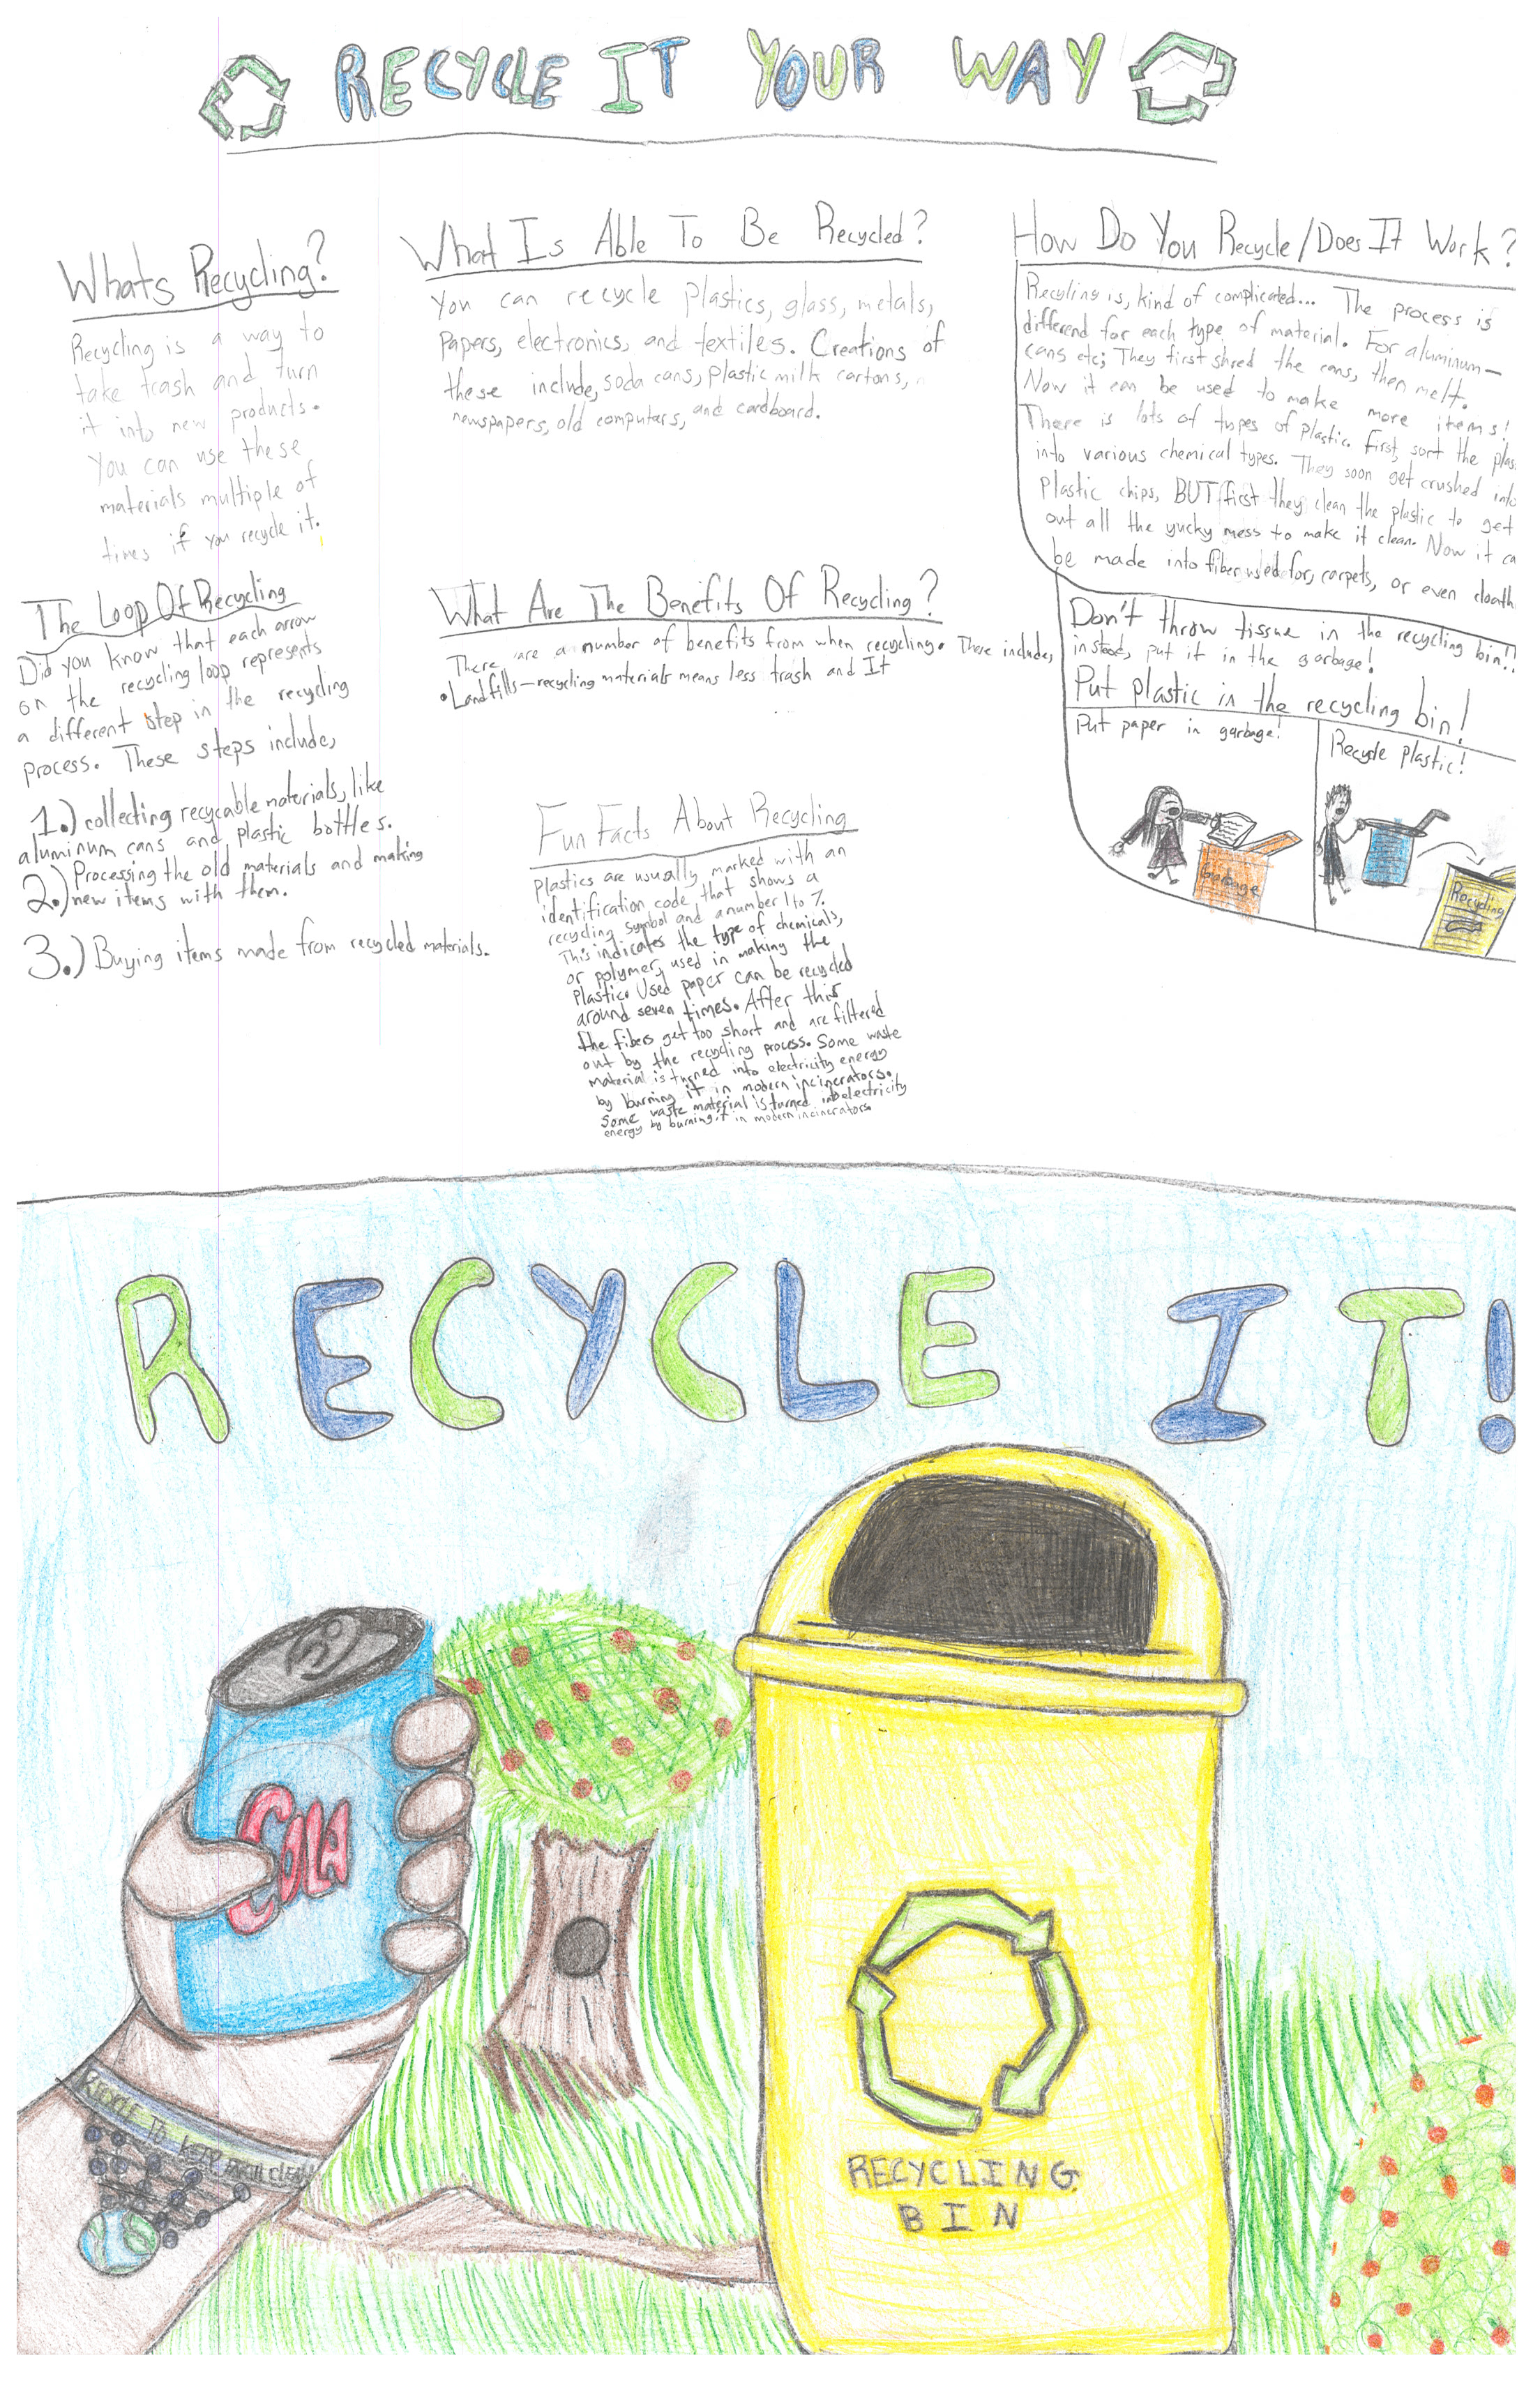 RECYCLE IT YOUR WAY
Whats Recycling?
Recycling is a way to
take trash and turn
it into new products.
You can use these
materials multiple of
times if you recycle it.
The Loop Of Recycling
Did you know that each arrow
on the recycling loop represents
a different step in the recycling
process. These steps include,
1.) collecting recycable materials, like
aluminum cans and plastic bottles.
2.) Processing the old materials and making
new items with them.
3.) Buying items made from recycled materials.
What Is Able To Be Recycled?
You can recycle plastics, glass, metals,
Papers, electronics, and textiles. Creations of
these include, soda cans, plastic milk cartons,
newspapers, old computers, and cardboard.
What Are The Benefits Of Recycling?
There are a number of benefits from when recycling. These includes,
• Landfills—recycling materials means less trash and It
Fun Facts About Recycling
Plastics are usually marked with an
identification code, that shows a
recycling symbol and a number 1 to 7.
This indicates the type of chemicals,
or polymer, used in making the
plastic. Used paper can be recycled
around seven times. After this
the fibers get too short and are filtered
out by the recycling process. Some waste
material is turned into electricity energy
by burning it in modern incinerators.
Some waste material is turned into electricity
energy by burning it in modern incinerators.
How Do You Recycle/Does It Work?
Recyling is, kind of complicated... The process is
differend for each type of material. For aluminum—
cans etc; They first shred the cans, then melt.
Now it can be used to make more items!
There is lots of types of plastic. first, sort the plas
into various chemical types. They soon get crushed into
Plastic chips, BUT first they clean the plastic to get
out all the yucky mess to make it clean. Now it ca
be made into fiber used for, carpets, or even cloath
Don't throw tissue in the recycling bin!!
instead, put it in the garbage!
Put plastic in the recycling bin!
Put paper in garbage!
Recycle plastic!
Garbage
Recycling
RECYCLE IT!
COLA
RECYCLE TO KEEP EARTH CLEAN
RECYCLING
BIN